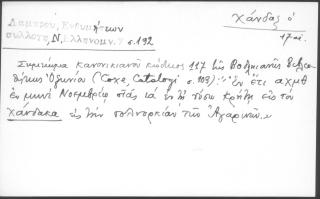 Λάμπρου, Ενθυμήσεων
συλλογή, Ν. Ελληνομν. 7 σ. 192
Χάνδαξ ὁ
17 αἰ.
Σημείωμα κανονικιανοῦ κώδικος 117 τῆς Βοδληιανῆς βιβλιο-
θήκης Ὀξωνίου (Coxe, Catalogi σ. 103): "Ἐν ἔτει αχμθ
ἐν μηνὶ Νοεμβρίῳ στὰς ιά ἐν τῇ νήσῳ Κρήτῃ εἰς τὸν
Χάνδακα εἰς τὴν πολιορκίαν τῶν Ἀγαρινῶν."